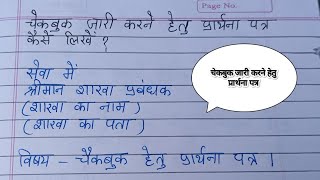 Page No.
चेकबुक जारी करने हेतु प्रार्थना पत्र
कैसे लिखें ?
सेवा में
श्रीमान शाखा प्रबंधक
(शाखा का नाम)
(शाखा का पता)
चेकबुक जारी करने हेतु
प्रार्थना पत्र
विषय – चैकबुक हेतु प्रार्थना पत्र ।